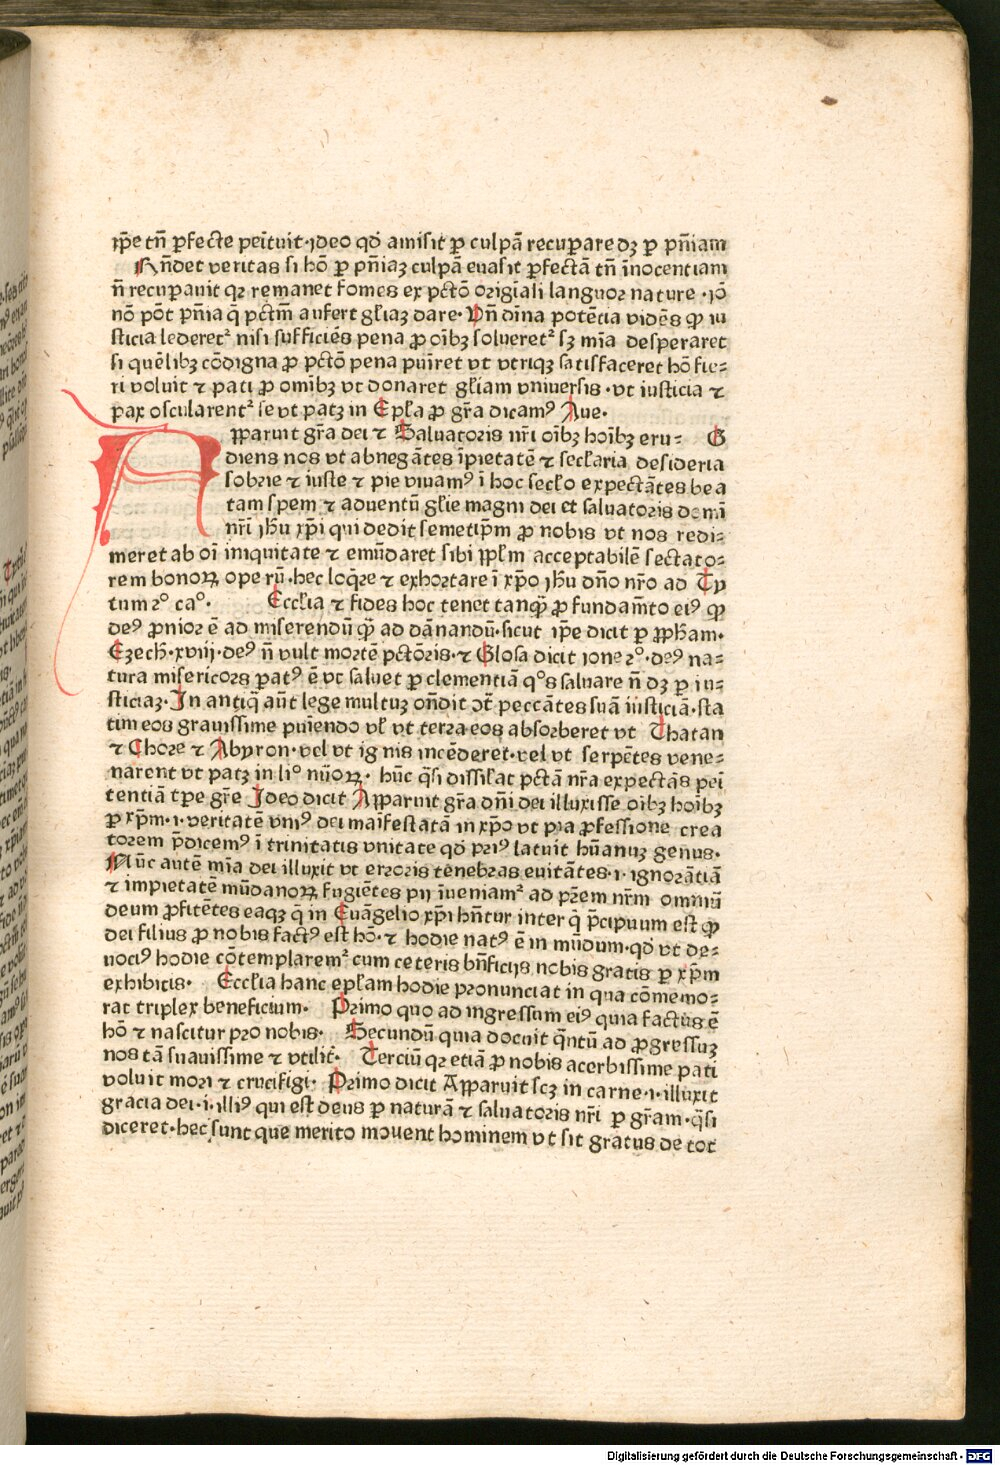 xp̄e tn̄ ꝑfecte peītuit·ideo qď amisit ꝑ culpā recuꝑare dꝫ ꝑ pn̄iam
Rn̄det veritas si hō ꝑ pn̄iaꝫ culpā euasit ꝑfectā tn̄ īnocentiam
n̄ recuꝑauit qꝛ remanet fomes ex pctō origīali languoꝛ nature ·iō
nō pōt pn̄ia q̄ pctm̄ aufert gl̄iaꝫ dare· Vn̄ dīna potēcia vidēs ꝙ iu
sticia lederetᷣ nisi sufficiēs pena ꝓ oībꝫ solueretᷣ sꝫ mīa desperaret
si quēlibꝫ cōdigna ꝓ pctō pena puīret vt vtriqꝫ satisfaceret hō fie⸗
ri voluit ⁊ pati ꝓ omībꝫ vt donaret gl̄iam vniuersis ·vt iusticia ⁊
pax oscularentᷣ se vt patꝫ in Epl̄a ꝓ gr̄a dicamꝰ Aue·
Apparuit gr̄a dei ⁊ Saluatoris nr̄i oībꝫ hoībꝫ eru⸗ G
diens nos vt abnegātes īpietatē ⁊ secl̄aria desideria
sobrie ⁊ iuste ⁊ pie viuamꝰ ī hoc secl̄o expectātes bea
tam spem ⁊ aduentū gl̄ie magni dei et saluatoris domī
nr̄i ih̄u xp̄i qui dedit semetip̄m ꝓ nobis vt nos redi⸗
meret ab oī iniquitate ⁊ emūdaret sibi ppl̄m acceptabilē sectato⸗
rem bonoꝝ ope rū·hec loq̄re ⁊ exhortare ī xp̄o ih̄u dn̄o nr̄o ad Ty
tum 2° ca°· Eccl̄ia ⁊ fides hoc tenet tanq̄ ꝓ fundam̄to eiꝰ ꝙ
deꝰ ꝓnior ē ad miserendū q̄ ad dānandū·sicut ip̄e dicit ꝑ ꝓph̄am·
Ezech̄·xviij·deꝰ n̄ vult mortē pctōris·⁊ Glosa dicit ione 2°·deꝰ na⸗
tura misericors patꝰ ē vt saluet ꝑ clementiā q°s saluare n̄ dꝫ ꝑ iu⸗
sticiaꝫ· In antiq̄ aūt lege multuꝫ on̄dit ↄt̄ peccātes suā iusticiā·sta
tim eos grauissime puīendo vl̄ vt terra eos absorberet vt Thatan
⁊ Chore ⁊ Abyron·vel vt ig nis incēderet·vel vt serpētes vene⸗
narent vt patꝫ in li° nūoꝝ· hūc q̄si dissil̄at pctā nr̄a expectās peī
tentiā tꝑe gr̄e Ideo dicit Apparuit gr̄a dn̄i dei illuxisse oībꝫ hoībꝫ
ꝑ xp̄m·i·veritatē vniꝰ dei maīfestatā in xp̄o vt pia ꝓfessione crea
torem p̄dicemꝰ ī trinitatis vnitate qď priꝰ latuit hūanuꝫ genus·
Nūc autē mīa dei illuxit vt erroris tenebras euitātes·i·ignorātiā
⁊ impietatē mūdanoꝝ fugiētes pij īueniamᷣ ad pr̄em nr̄m omniū
deum ꝓfitētes eaqꝫ q̄ in Euāgelio xp̄i hn̄tur inter q̄ p̄cipuum est ꝙ
dei filius ꝓ nobis factꝰ est hō·⁊ hodie natꝰ ē in mūdum·qď vt de⸗
uociꝰ hodie cōtemplaremᷣ cum ceteris bn̄ficijs nobis gratis ꝑ xp̄m
exhibitis· Eccl̄ia hanc epl̄am hodie pronunciat in qua cōmemo⸗
rat triplex beneficium· Primo quo ad ingressum eiꝰ quia factus ē
hō ⁊ nascitur pro nobis· Secundū quia docuit q̄ntū ad ꝓgressuꝫ
nos tā suauissime ⁊ vtilit̄· Terciū qꝛ etiā ꝓ nobis acerbissime pati
voluit mori ⁊ crucifigi· Primo dicit Apparuit scꝫ in carne·i·illuxit
gracia dei·i·illiꝰ qui est deus ꝑ naturā ⁊ saluatoris nr̄i ꝑ gr̄am·q̄si
diceret·hec sunt que merito mouent hominem vt sit gratus de tot
Digitalisierung gefördert durch die Deutsche Forschungsgemeinschaft - DFG